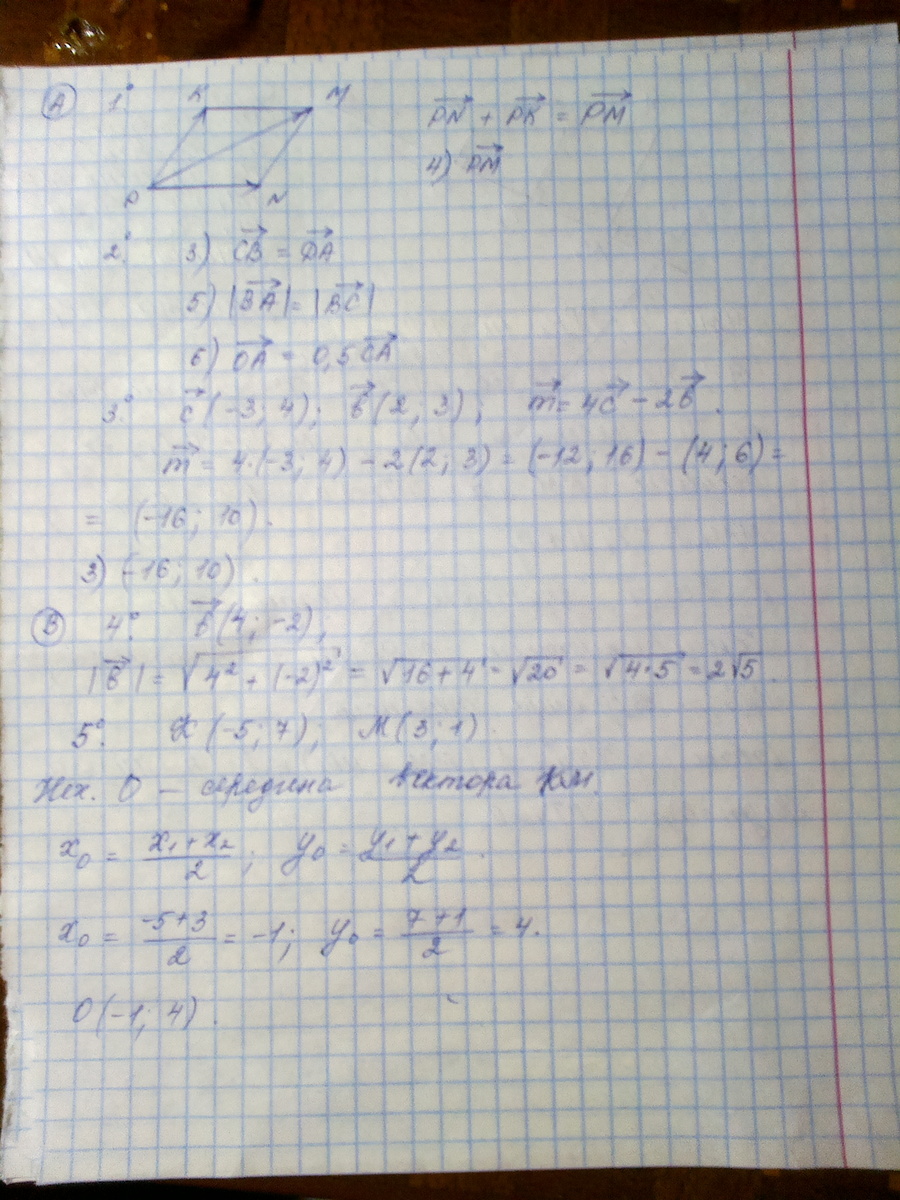 A 1° K M
PN + PK = PM
4) PM
P N
2°. 3) CB = DA
5) |BA| = |BC|
6) OA = 0,5 CA
3° c(-3; 4); b(2; 3); m = 4c - 2b.
m = 4·(-3; 4) - 2(2; 3) = (-12; 16) - (4; 6) =
= (-16; 10).
3) (-16; 10).
B 4°. b(4; -2);
|b| = √4² + (-2)² = √16+4 = √20 = √4·5 = 2√5.
5°. K(-5; 7); M(3; 1)
O — середина вектора KM.
x₀ = x₁+x₂/2; y₀ = y₁+y₂/2.
x₀ = -5+3/2 = -1; y₀ = 7+1/2 = 4.
O(-1; 4).